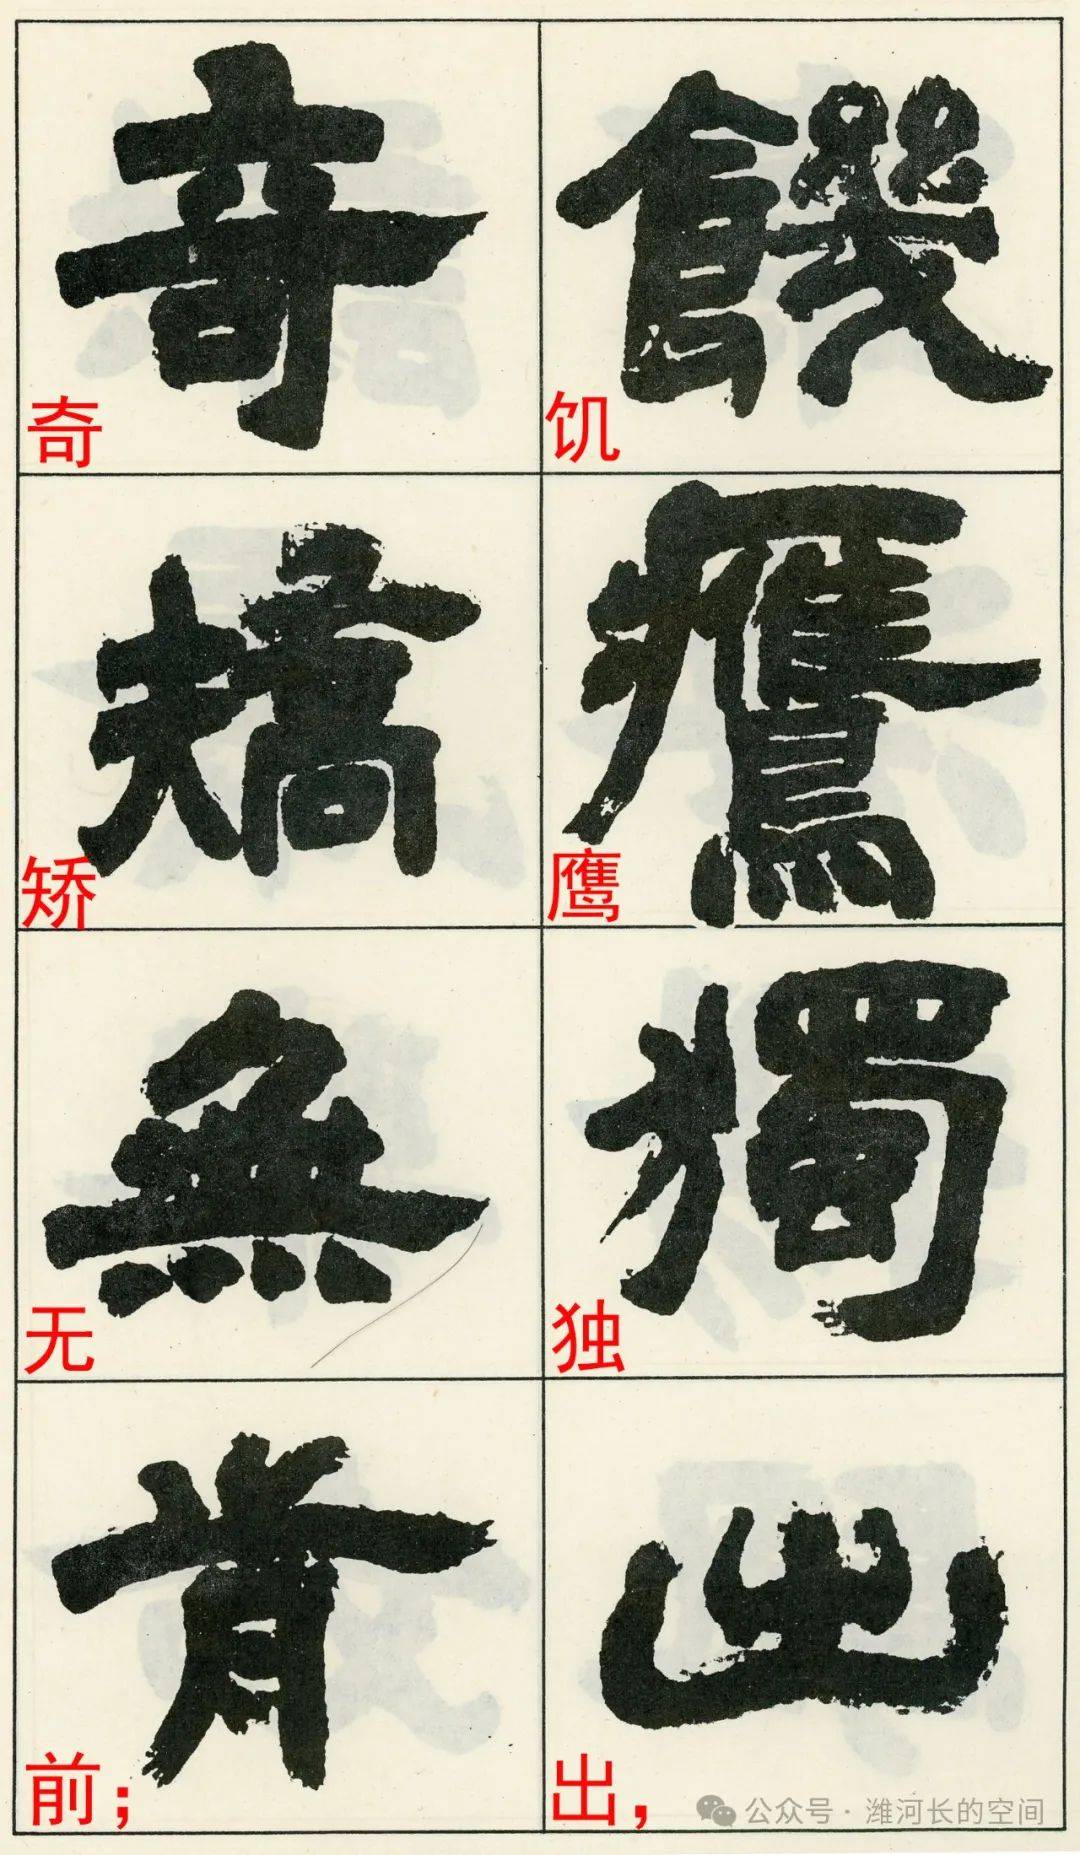 饑鷹獨出
饥鹰独出，
奇矯無前
奇矫无前；
公众号·潍河长的空间